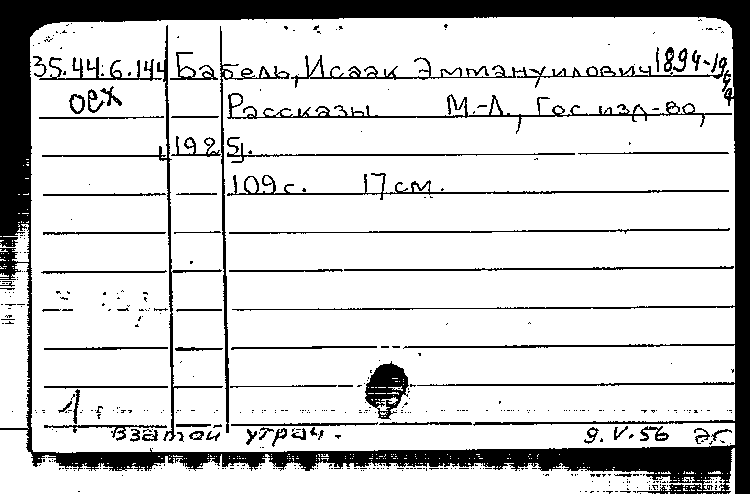 35.44.6.144 Бабель, Исаак Эммануилович 1894-19
осх Рассказы. М.-Л., Гос. изд-во,
[1925].
109 с. 17 см.
1
Взатои утрач. 9.V.56